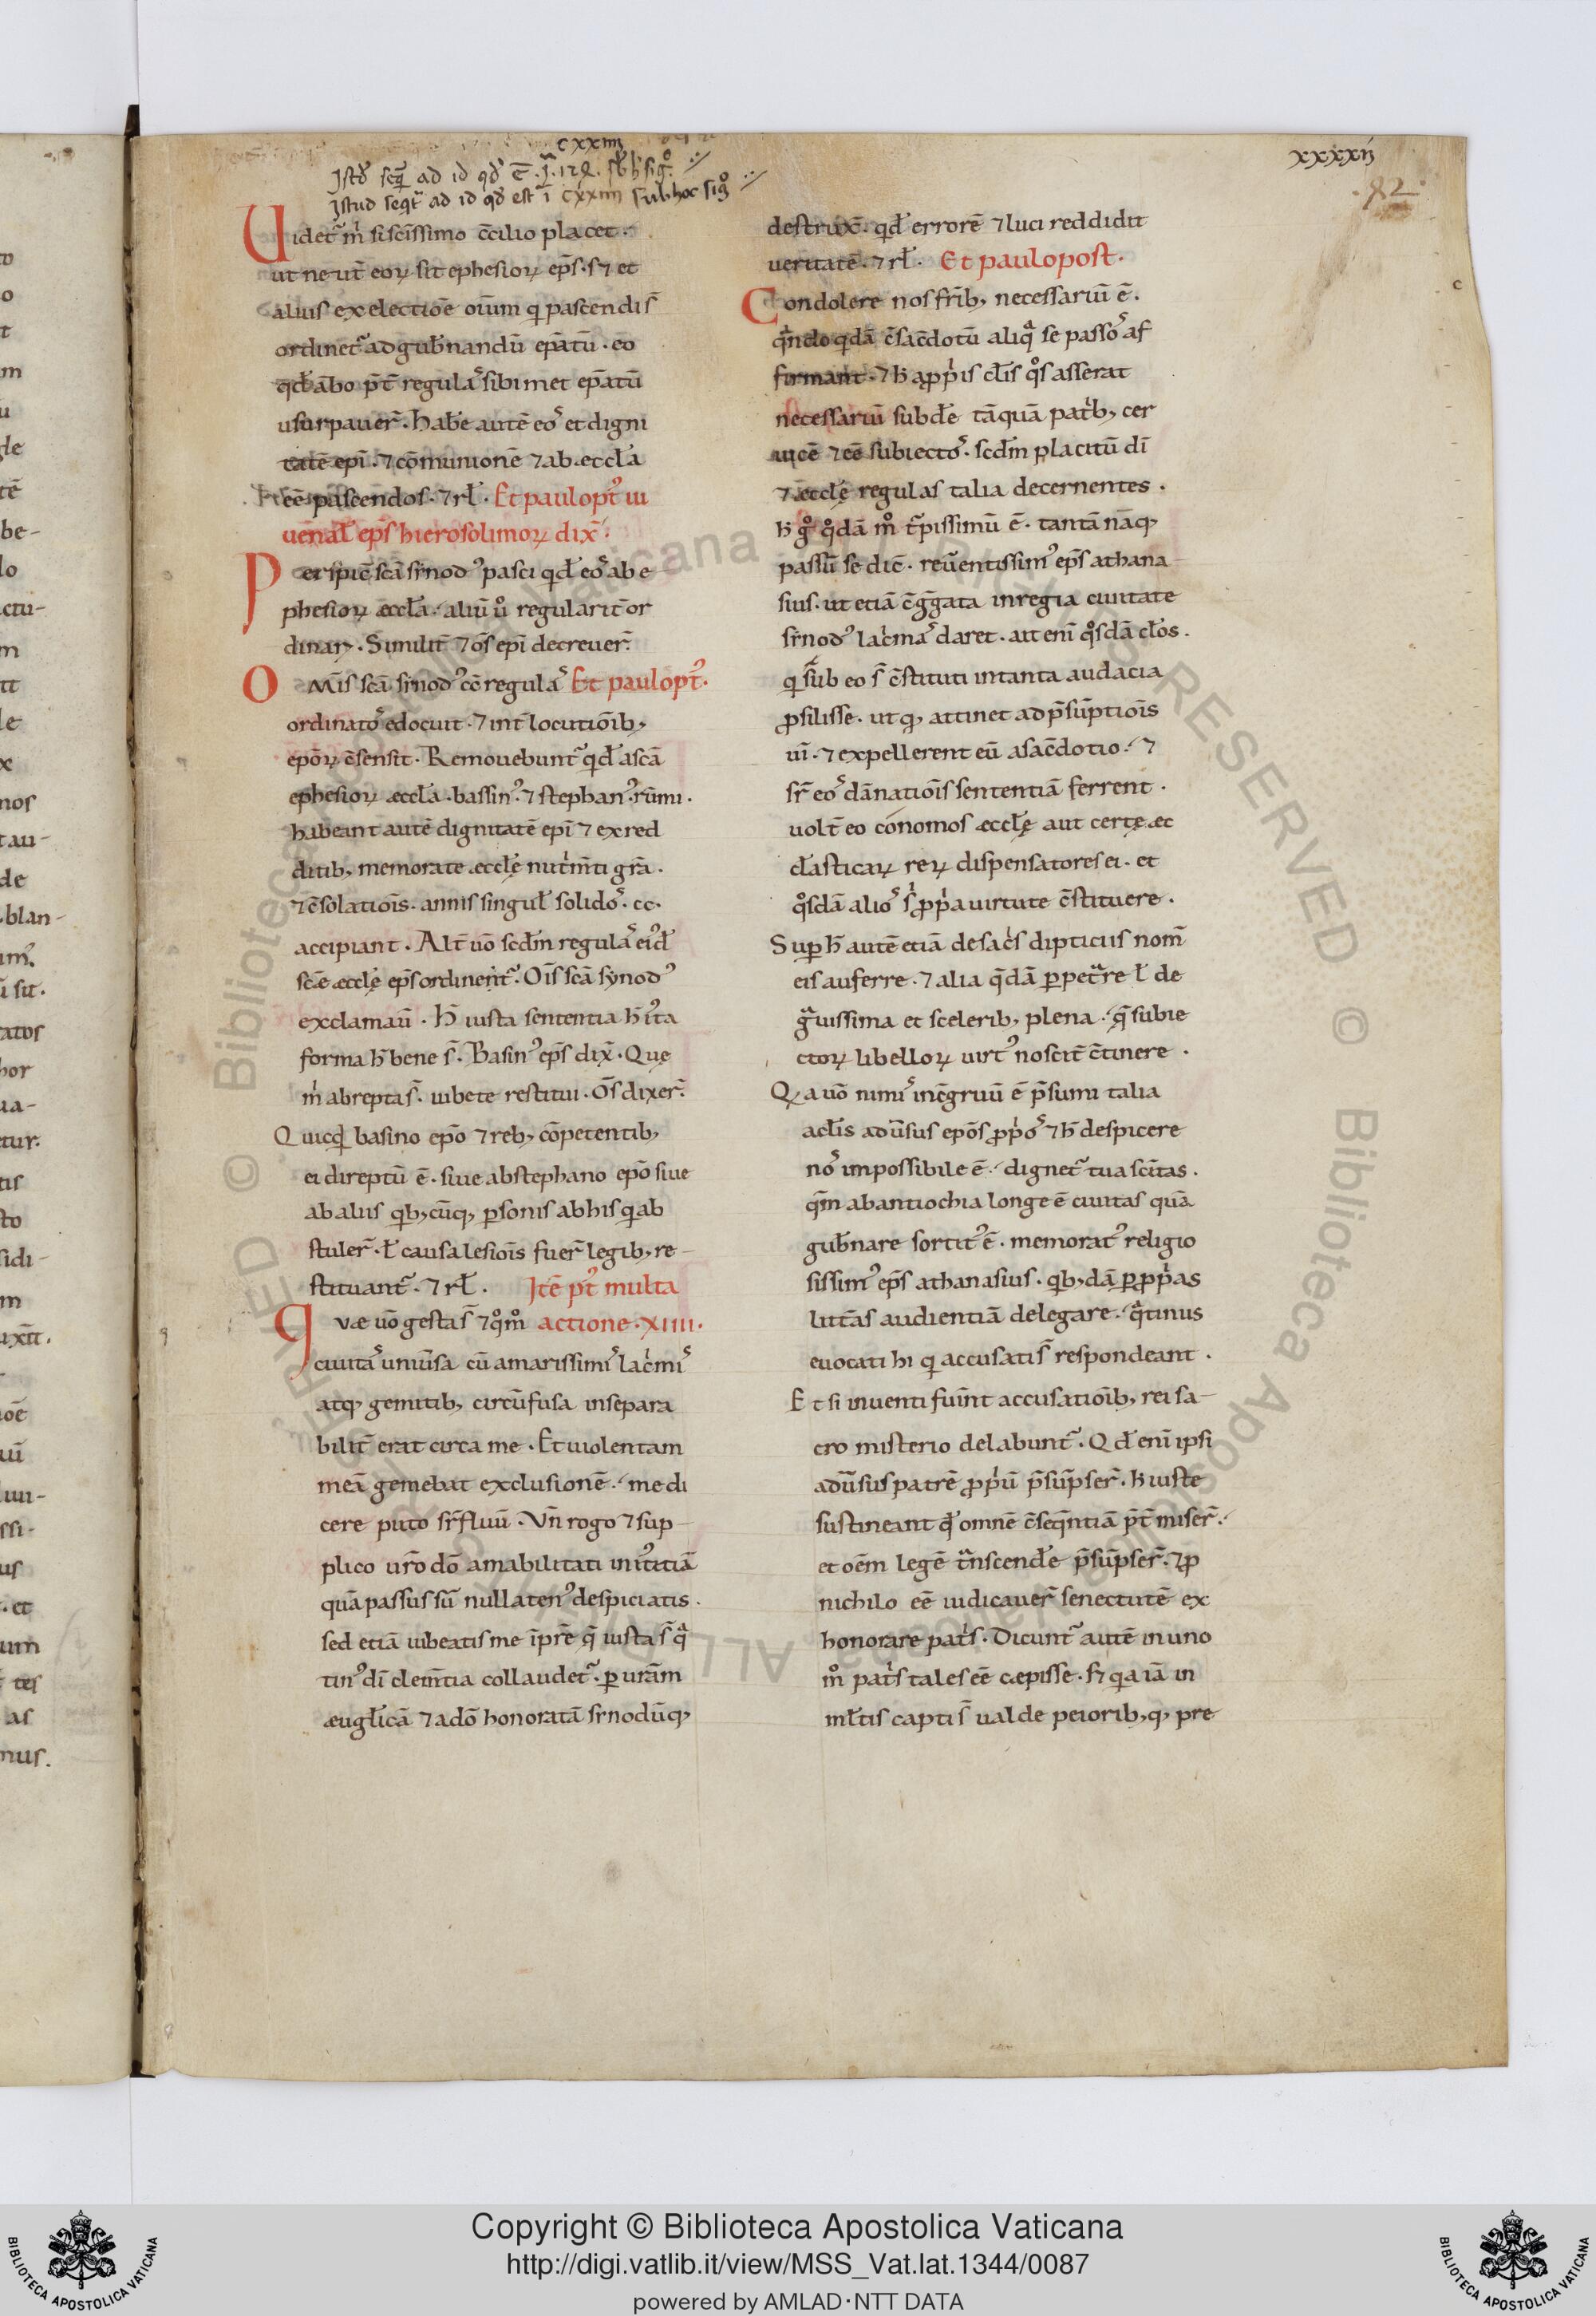 cxxiiii
Istđ seq̃ ad id qđ ē .j. 128. sƀ h̄ sigº.
Istud seqt̃ ad id qđ est ĩ cxxiiii sub hoc sigº
xxxxij
.82.
Videt̃ m̍ si scīssimo c̄cilio placet.
ut neut̄ eoꝝ sit ephesioꝝ ep̄s. s; et
alius ex electiōe oīum q̇ pascendi s̄
ordinet̃ ad guƀnandū ep̄atū. eo
qđ ābo p̄t̄ regulaˢ sibimet ep̄atū
usurpauer̄. Habe autē eoˢ et digni
tatē ep̄i. ⁊ cōmunionē ⁊ ab eccła
eē pascendos. ⁊ rł. Et paulopꝰt iu
uēnał ep̄s hierosolimoꝝ dix̄.
Perspicē scā sr̄nodꝰ pasci qđ eoˢ ab e
phesioꝝ æccła. aliū uͦ regularit̄ or
dinari. Similit̄ ⁊ ōs ep̄i decreuer̄.
OMīs scā sr̄nodꝰ cē regulaˢ Et paulopt̉.
ordinatoˢ edocuit. ⁊ int̄locutiōib,
ep̄oꝝ c̄sensit. Remouebunt̃ qđ a scā
ephesioꝝ æccła. bassinꝰ. ⁊ stephanꝰ. rūmi.
habeant autē dignitatē ep̄i ⁊ ex red
ditib, memorate æccłę nutm̄ti gr̄a.
⁊ c̄solatiōis. annis singuł solidoˢ. cc.
accipiant. Alt̄ uō scđm regulaˢ eiꝰđ
sc̄e æccłę ep̄s ordinent̃. Oīs scā synodꝰ
exclamaū. H̄ iusta sententia h̄ iꝰta
forma h̄ bene s̄. Basinꝰ ep̄s dix̄. Quę
m̍ abrepta s̄. iubete restitui. Ōs dixer̄.
Quicq̇d basino ep̄o ⁊ reb, cōpetentib,
ei direptū ē. siue ab stephano ep̄o siue
ab aliis q̇b, cūq, ꝑsonis ab his q̇ ab
stuler̄. ł causa lesiōis fuer̄ legib, re-
stituant̃. ⁊ rł. Itē pꝰt multa
Quæ uō gesta s̄ ⁊ qºm̊ actione. XIIII.
ciuitaˢ uniūsa cū amarissimiˢ lac̍miˢ
atq, gemitib, circūfusa insepara
bilit̄ erat circa me. Et uiolentam
meā gemebat exclusionē. me di
cere puto sr̄fluū. Vn̄ rogo ⁊ sup-
plico ur̄o dō amabilitati iniꝰtitiā
quā passus sū nullatenꝰ despiciatis.
sed etiā iubeatis me īpr̄e q̄ iusta s̄ qͣ
tinꝰ dī clem̄tia collaudet̃. ꝑ urām
æugłicā ⁊ a dō honoratā sr̄nodūq,
destruxc̄. qđ errorē ⁊ luci reddidit
ueritatē. ⁊ rł. Et paulopost.
Condolere nos fr̄ib, necessariū ē.
q̍ndo q̇dā c̄sac̄dotū aliqͣ se passoˢ af
firmant. ⁊ h̄ a ꝓp̍is cłis q̊s asserat
necessariū subđe tāquā pat̍b, cer
uicē ⁊ eē subiectoˢ. scđm placitū dī
⁊ æccłę regulas talia decernentes.
h̄ gº q̊dā m̊ t̍pissimū ē. tantā nāq,
passū se dic̄. reūentissimꝰ ep̄s athana-
sius. ut etiā c̄g̍gata in regia ciuitate
sr̄nodꝰ lac̍maˢ daret. ait eni q̊sdā cłos.
q̇ sub eo s̄ c̄stituti in tanta audacia
ꝓsilisse. ut q, attinet ad p̄sūptiōis
uī. ⁊ expellerent eū a sac̄dotio. ⁊
sr̄ eoˢ dānatiōis sententiā ferrent.
uolt̄ eo cōnomos æccłę aut certę æc
cłasticaꝝ reꝝ dispensatores ei. et
q̊sdā alioˢ s̍ ꝓp̍a uirtute c̄stituere.
Suꝑ h̄ autē etiā de sac̍s dipticiis nom̄
eis auferre. ⁊ alia q̄dā ꝑpetͣre ł de
gͣuissima et scelerib, plena. q̄ subie
ctoꝝ libelloꝝ uirtꝰ noscit̄ c̄tinere.
Qa uō nimiˢ incg̍ruū ē p̄sumi talia
a cłis adūsus ep̄os ꝓp̍oˢ ⁊ h̄ despicere
noˢ impossibile ē. dignet̃ tua scītas.
qm̄ ab antiochia longe ē ciuitas quā
guƀnare sortitꝰ ē. memoratꝰ religio
sissimꝰ ep̄s athanasius. q̇b,dā ꝑ ꝓp̍as
litt̄as audientiā delegare. qͣtinus
euocati hi q̇ accusati s̄ respondeant.
Et si inuenti fuīnt accusatiōib, rei sa-
cro misterio delabunt̃. Qđ eni ipsi
adūsus patrē ꝓp̍ū p̄sūpser̄. h̄ iuste
sustineant qđ omnē c̄seqn̄tiā p̄t̄miser̄.
et oēm legē tͣnscendē p̄sūpser̄. ⁊ ꝓ
nichilo eē iudicauer̄ senectutē ex
honorare pat̍s. Dicunt̃ autē in uno
m̊ pat̍s tales eē cæpisse. s; q̇a iā in
młtis capti s̄ ualde peiorib, q, pre
Copyright © Biblioteca Apostolica Vaticana
http://digi.vatlib.it/view/MSS_Vat.lat.1344/0087
powered by AMLAD·NTT DATA
BIBLIOTECA APOSTOLICA VATICANA
BIBLIOTECA APOSTOLICA VATICANA